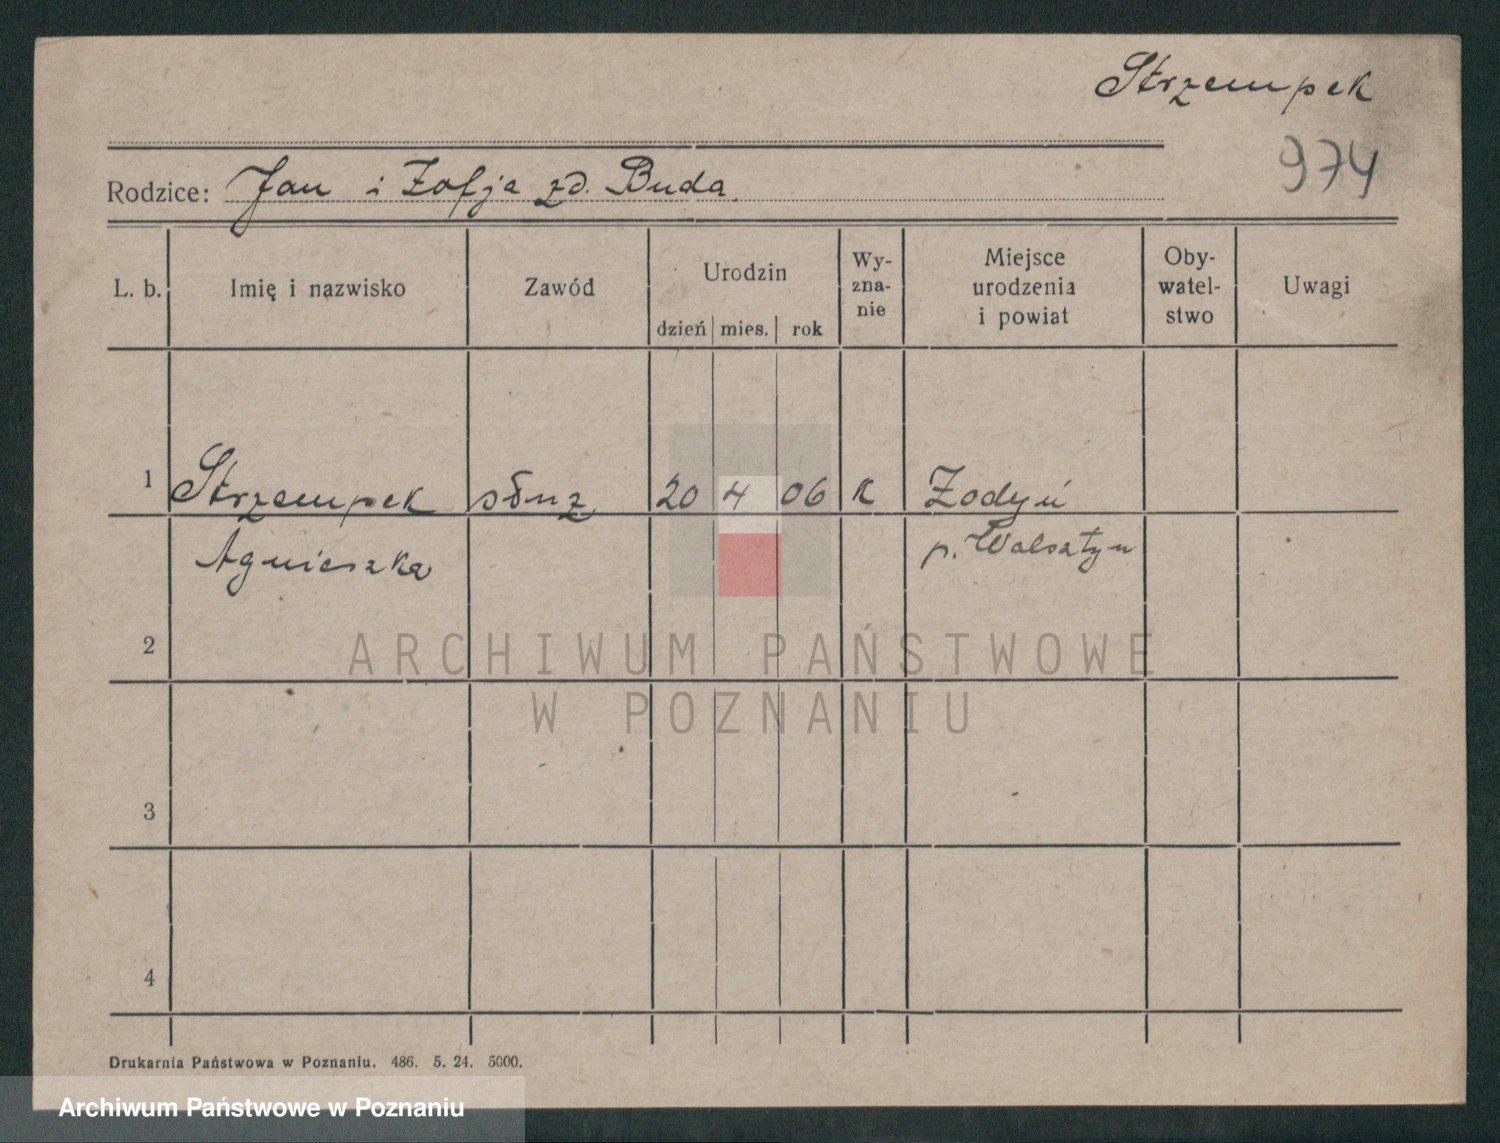 Strzempek
974
Rodzice: Jan i Zofja zd. Buda
L. b. Imię i nazwisko Zawód Urodzin dzień mies. rok Wy-zna-nie Miejsce urodzenia i powiat Oby-watel-stwo Uwagi
1 Strzempek służ 20 4 06 k Zodyń
Agnieszka p. Wolsztyn
2
ARCHIWUM PAŃSTWOWE
W POZNANIU
3
4
Drukarnia Państwowa w Poznaniu. 486. 5. 24. 5000.
Archiwum Państwowe w Poznaniu